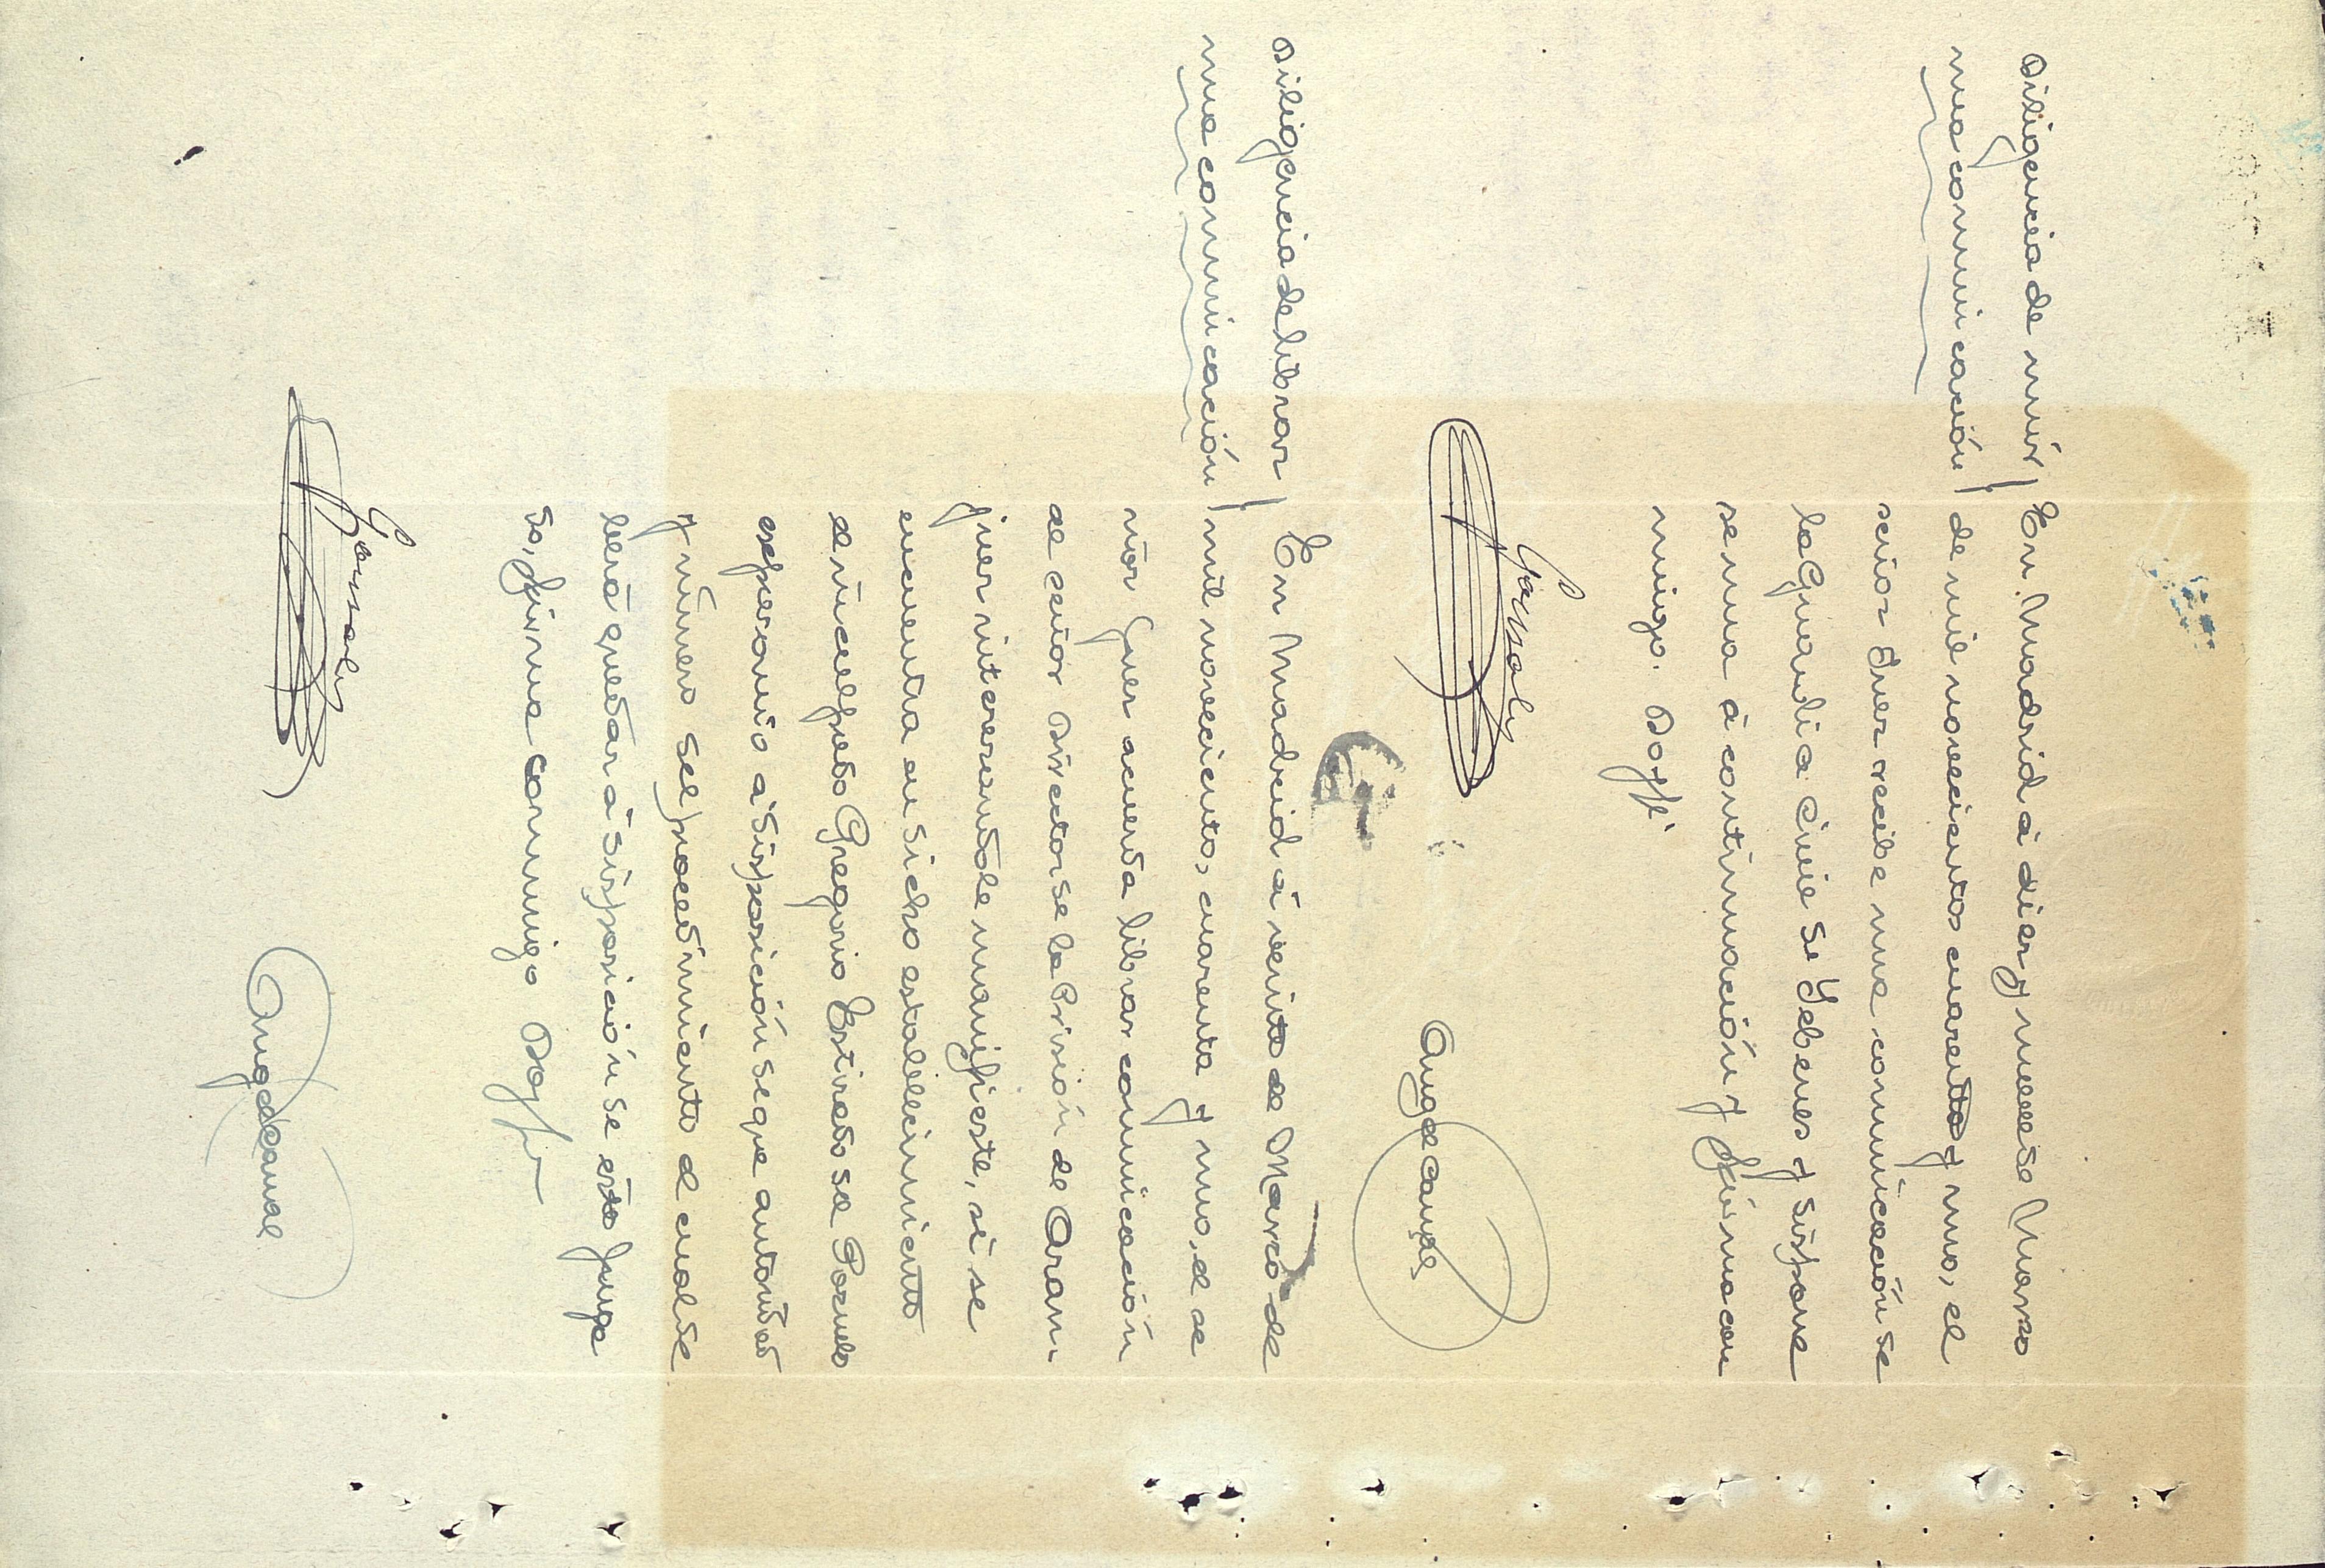 Diligencia de unir
una comunicación
En Madrid a diez y nueve de Marzo
de mil novecientos cuarenta y uno, el
señor Juez recibe una comunicación de
la Guardia Civil de Yebenes y dispone
se una a continuación y firma con
migo. Doy fé.
Diligencia de librar
una comunicación
En Madrid a veinte de Marzo de
mil novecientos cuarenta y uno, el se
ñor Juez acuerda librar comunicación
al señor Director de la Prisión de Aran
juez interesandole manifieste, si se
encuentra en dicho establecimiento
el inculpado Gregorio Estirado del Pozuelo
expresando a disposición de que autoridad
y número del procedimiento el cual de
berá quedar a disposición de este Juzga
do, firma conmigo Doy fé